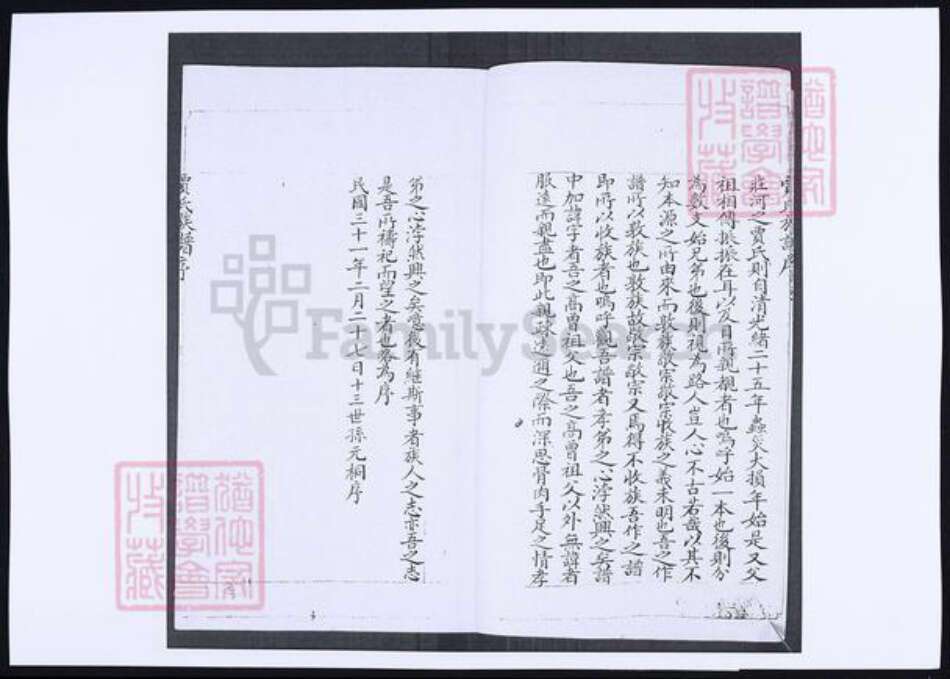 賈氏族譜序
莊河之賈氏則自清光緒二十五年蟲災大損年始是又父
祖相傳振振在耳以及目所親覩者也嗚呼始一本也後則分
為數支始兄弟也後則視為路人豈人心不古若哉以其不
知本源之所由來而敬族敬宗敬宗收族之義未明也吾之作
譜所以敦族也敦族故敬宗敬宗又焉得不收族吾作之譜
即所以收族者也嗚呼觀吾譜者孝弟之心浡然興之矣譜
中加諱字者吾之高曾祖父也吾之高曾祖父以外無諱者
服遠而親盡也即此親疎遠邇之際而深思骨肉手足之情孝
弟之心浡然興之矣噫後有繼斯事者族人之志亦吾之志
是吾所禱祀而望之者也爰為序
民國三十一年二月二十七日十三世孫元桐序
賈氏族譜序
猶他家
譜學會
收藏
猶他家
譜學會
收藏
FamilySearch